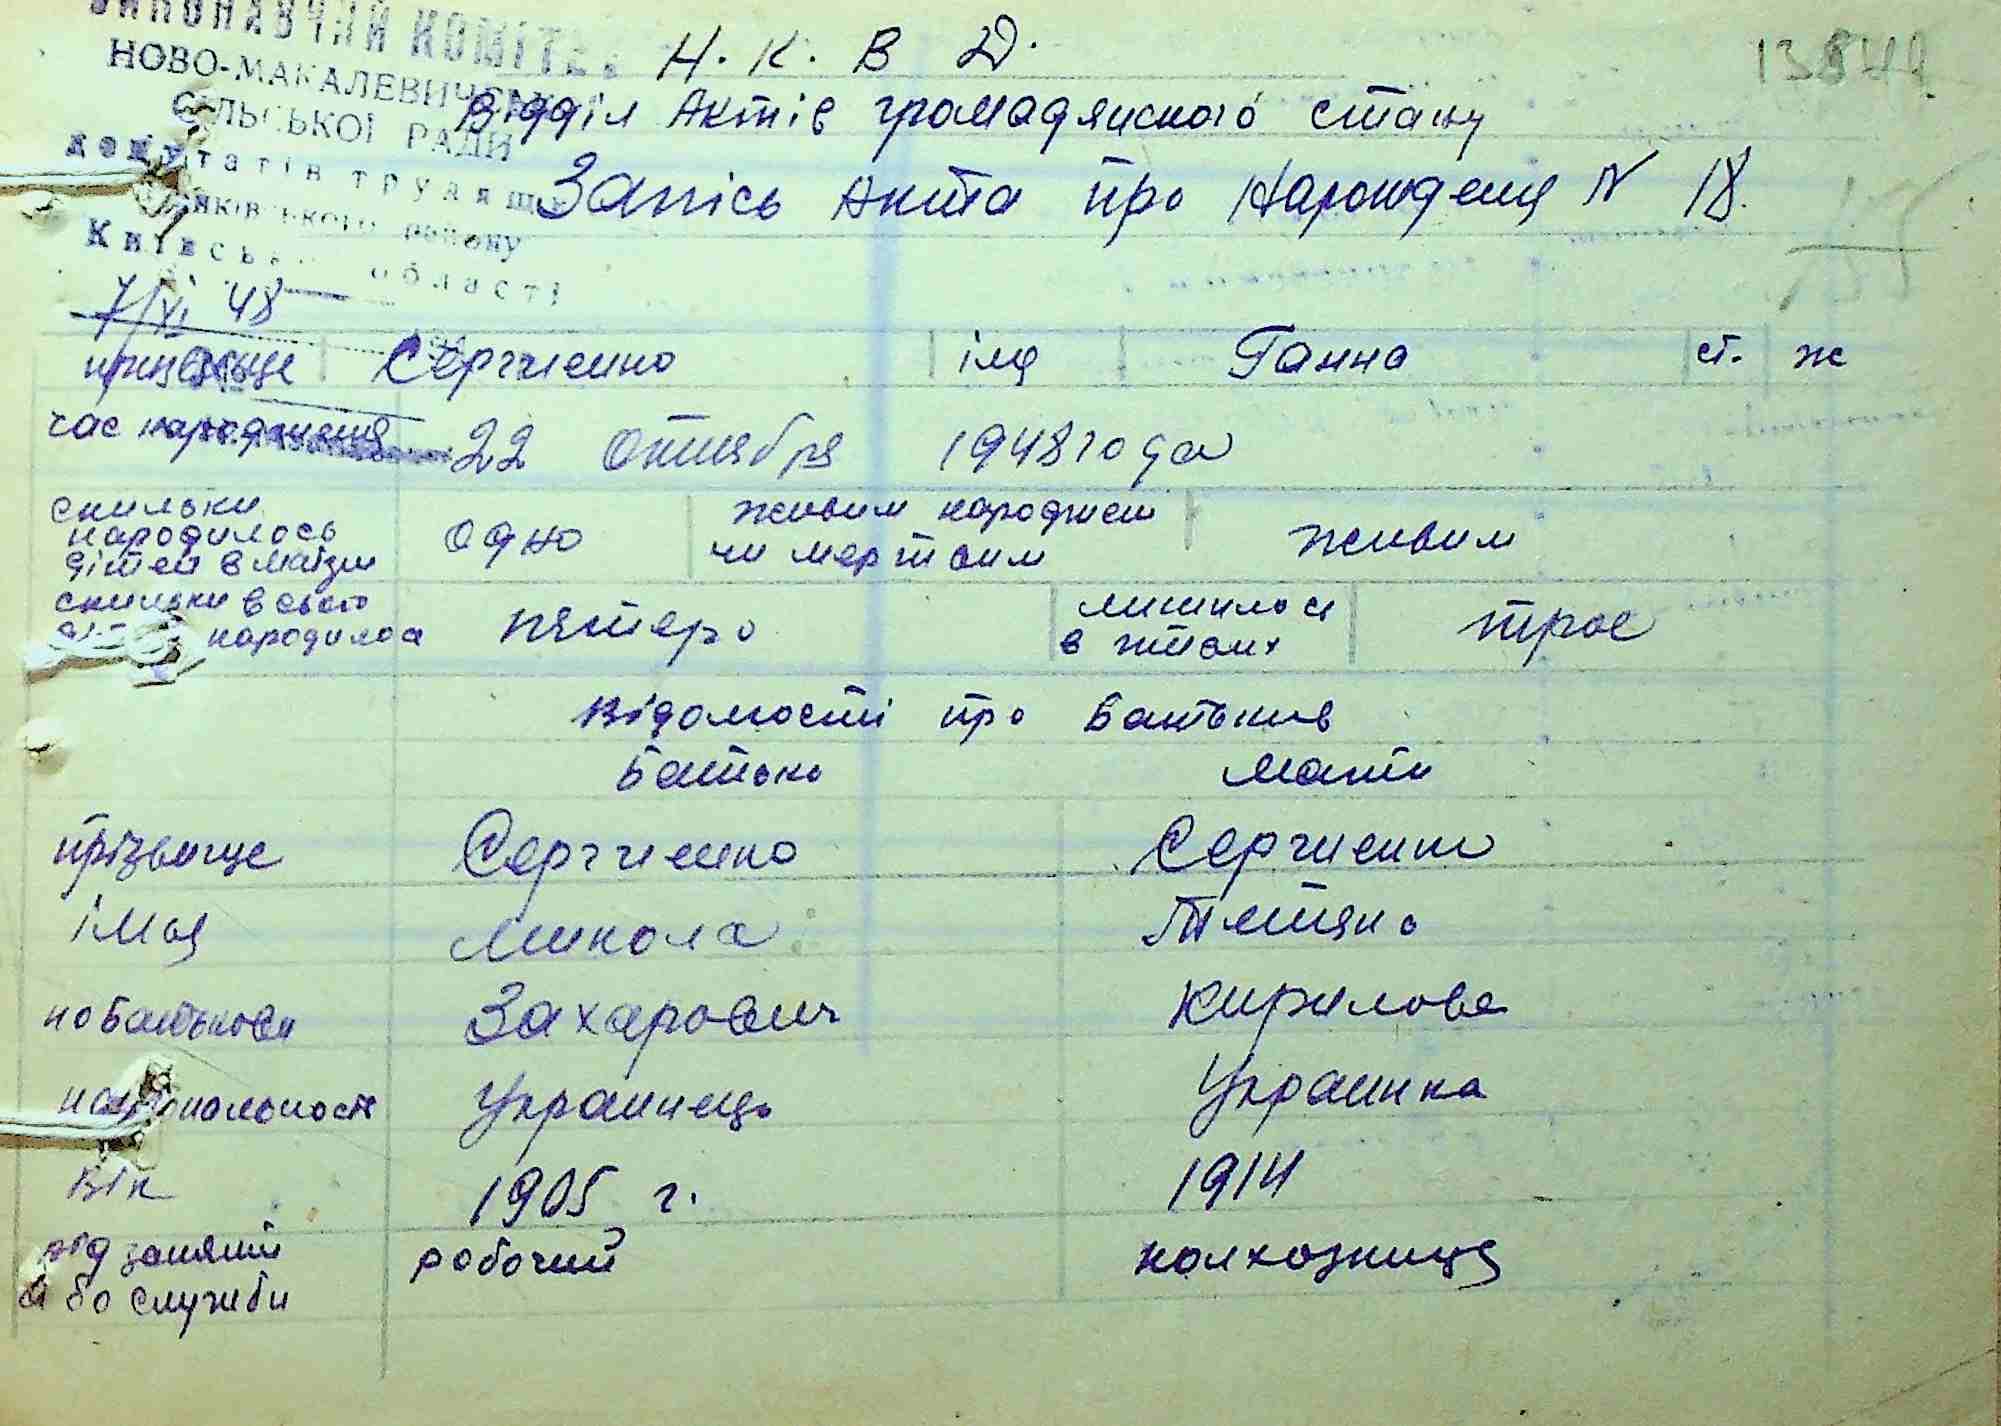 ВИКОНАВЧИЙ КОМІТЕТ
НОВО-МАКАЛЕВИЧСЬКОЇ
СІЛЬСЬКОЇ РАДИ
депутатів трудящих
району
Київської області
7/XI 48
13849
Н. К. В Д.
Відділ Актів громадянского стану
Запісь Акта про Нарождення N 18.
прізвище Сергиенко імя Ганна ст. ж
час народження 22 Октября 1948 года
скильки народилось дітей в маїзм одно живим народжен чи мертвим живим
скильки всього народилося пятеро лишилося в живих трое
Відомості про Батьків
Батько Мати
прізвище Сергиенко Сергиенко
імья Микола Тетяна
по Батькови Захарович Кирилова
национальность Украинець Украинка
вік 1905 г. 1914
род занятий робочий колхозниця
або служби